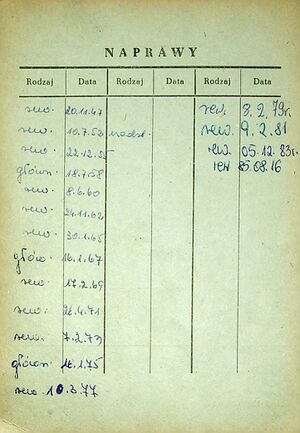 NAPRAWY
Rodzaj Data Rodzaj Data Rodzaj Data
rew. 20.11.47
rew. 10.7.52
rew. 22.12.55
główn. 18.7.58
rew. 8.6.60
rew. 24.11.62
rew. 30.1.65
głów. 16.1.67
rew. 17.2.69
rew. 4.71
rew. 7.2.73
główn. 16.1.75
rew. 10.3.77
rew. 8.2.79r.
rew. 9.2.81
rew. 05.12.83r.
rew 85.08.16